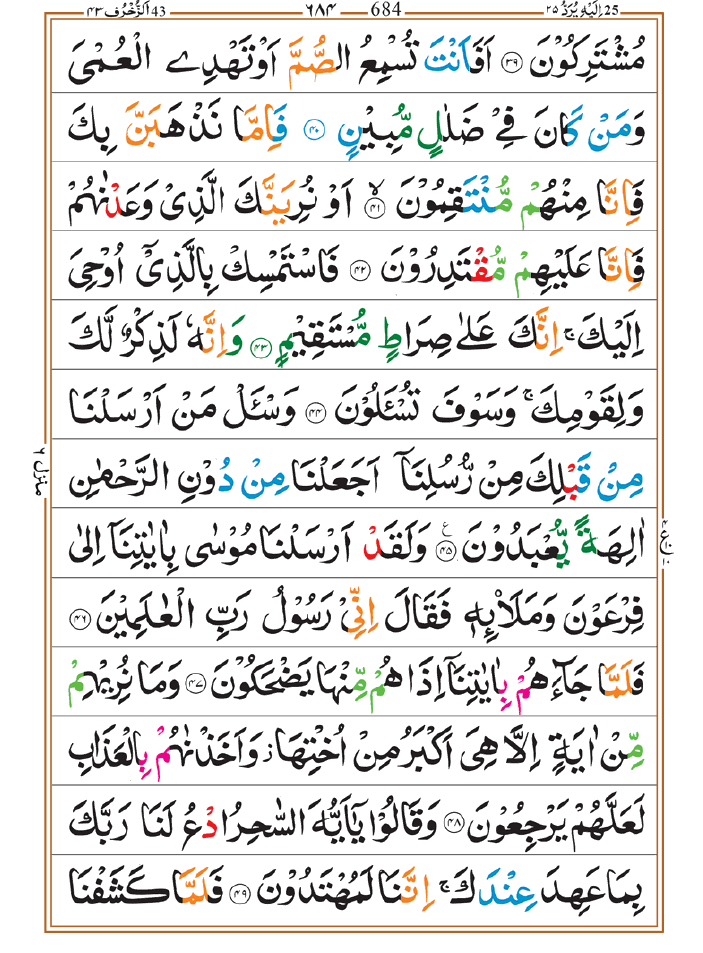 25 اِلَيْهِ يُرَدُّ ٢٥ 684 ٦٨٤ 43 اَلزُّخْرُف ٤٣
مُشْتَرِكُوْنَ ﴿۳۹﴾ اَفَاَنْتَ تُسْمِعُ الصُّمَّ اَوْ تَهْدِي الْعُمْىَ
وَمَنْ كَانَ فِىْ ضَلٰلٍ مُّبِيْنٍ ﴿۴۰﴾ فَاِمَّا نَذْهَبَنَّ بِكَ
فَاِنَّا مِنْهُمْ مُّنْتَقِمُوْنَ ۙ﴿۴۱﴾ اَوْ نُرِيَنَّكَ الَّذِىْ وَعَدْنٰهُمْ
فَاِنَّا عَلَيْهِمْ مُّقْتَدِرُوْنَ ﴿۴۲﴾ فَاسْتَمْسِكْ بِالَّذِىْۤ اُوْحِىَ
اِلَيْكَ ۚ اِنَّكَ عَلٰى صِرَاطٍ مُّسْتَقِيْمٍ ﴿۴۳﴾ وَاِنَّهٗ لَذِكْرٌ لَّكَ
وَلِقَوْمِكَ ۚ وَسَوْفَ تُسْـَٔلُوْنَ ﴿۴۴﴾ وَسْـَٔلْ مَنْ اَرْسَلْنَا
مِنْ قَبْلِكَ مِنْ رُّسُلِنَاۤ اَجَعَلْنَا مِنْ دُوْنِ الرَّحْمٰنِ
اٰلِهَةً يُّعْبَدُوْنَ ﴿۴۵﴾ ع وَلَقَدْ اَرْسَلْنَا مُوْسٰى بِاٰيٰتِنَاۤ اِلٰى
فِرْعَوْنَ وَمَلَا۟ئِهٖ فَقَالَ اِنِّىْ رَسُوْلُ رَبِّ الْعٰلَمِيْنَ ﴿۴۶﴾
فَلَمَّا جَآءَهُمْ بِاٰيٰتِنَاۤ اِذَا هُمْ مِّنْهَا يَضْحَكُوْنَ ﴿۴۷﴾ وَمَا نُرِيْهِمْ
مِّنْ اٰيَةٍ اِلَّا هِىَ اَكْبَرُ مِنْ اُخْتِهَا ۚ وَاَخَذْنٰهُمْ بِالْعَذَابِ
لَعَلَّهُمْ يَرْجِعُوْنَ ﴿۴۸﴾ وَقَالُوْا يٰۤاَيُّهَ السّٰحِرُ ادْعُ لَنَا رَبَّكَ
بِمَا عَهِدَ عِنْدَكَ ۚ اِنَّنَا لَمُهْتَدُوْنَ ﴿۴۹﴾ فَلَمَّا كَشَفْنَا
منزل ٦